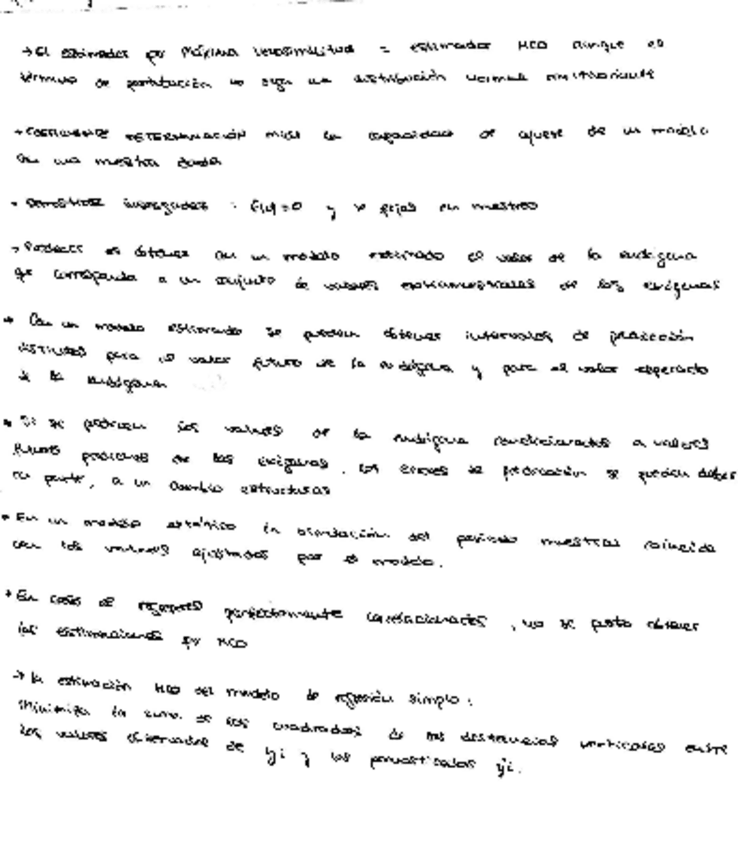 → El estimador por Máxima Verosimilitud = estimador MCO aunque el
término de perturbación no siga una distribución normal multivariante
→ COEFICIENTE DETERMINACIÓN mide la capacidad de ajuste de un modelo
en una muestra dada
E(u)=0 y se en muestreo
→ Predecir es obtener en un modelo estimado el valor de la endógena
que corresponda a un conjunto de valores extramuestrales de las exógenas
→ Con un modelo estimado se pueden obtener intervalos de predicción
distintos para el valor futuro de la endógena y para el valor esperado
de la endógena
• Si se predicen los valores de la endógena condicionados a valores
futuros de las exógenas, los errores de predicción se pueden deber
en parte, a un cambio estructural
• En un modelo estático la simulación del periodo muestral coincide
con los valores ajustados por el modelo.
• En caso de regresores perfectamente correlacionados, no se obtener
las estimaciones por MCO
→ La estimación MCO del modelo de regresión simple:
Minimiza la suma de los cuadrados de las distancias verticales entre
los valores observados de yi y los pronosticados ŷi.